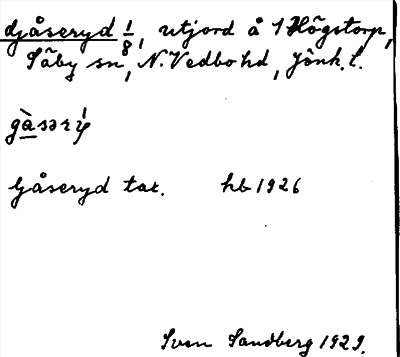 djåseryd 1/8, utjord å 1 Högstorp,
Säby sn, N. Vedbo hd, Jönk. l.
Gåseryd tax. hb 1926
Sven Sandberg 1929.